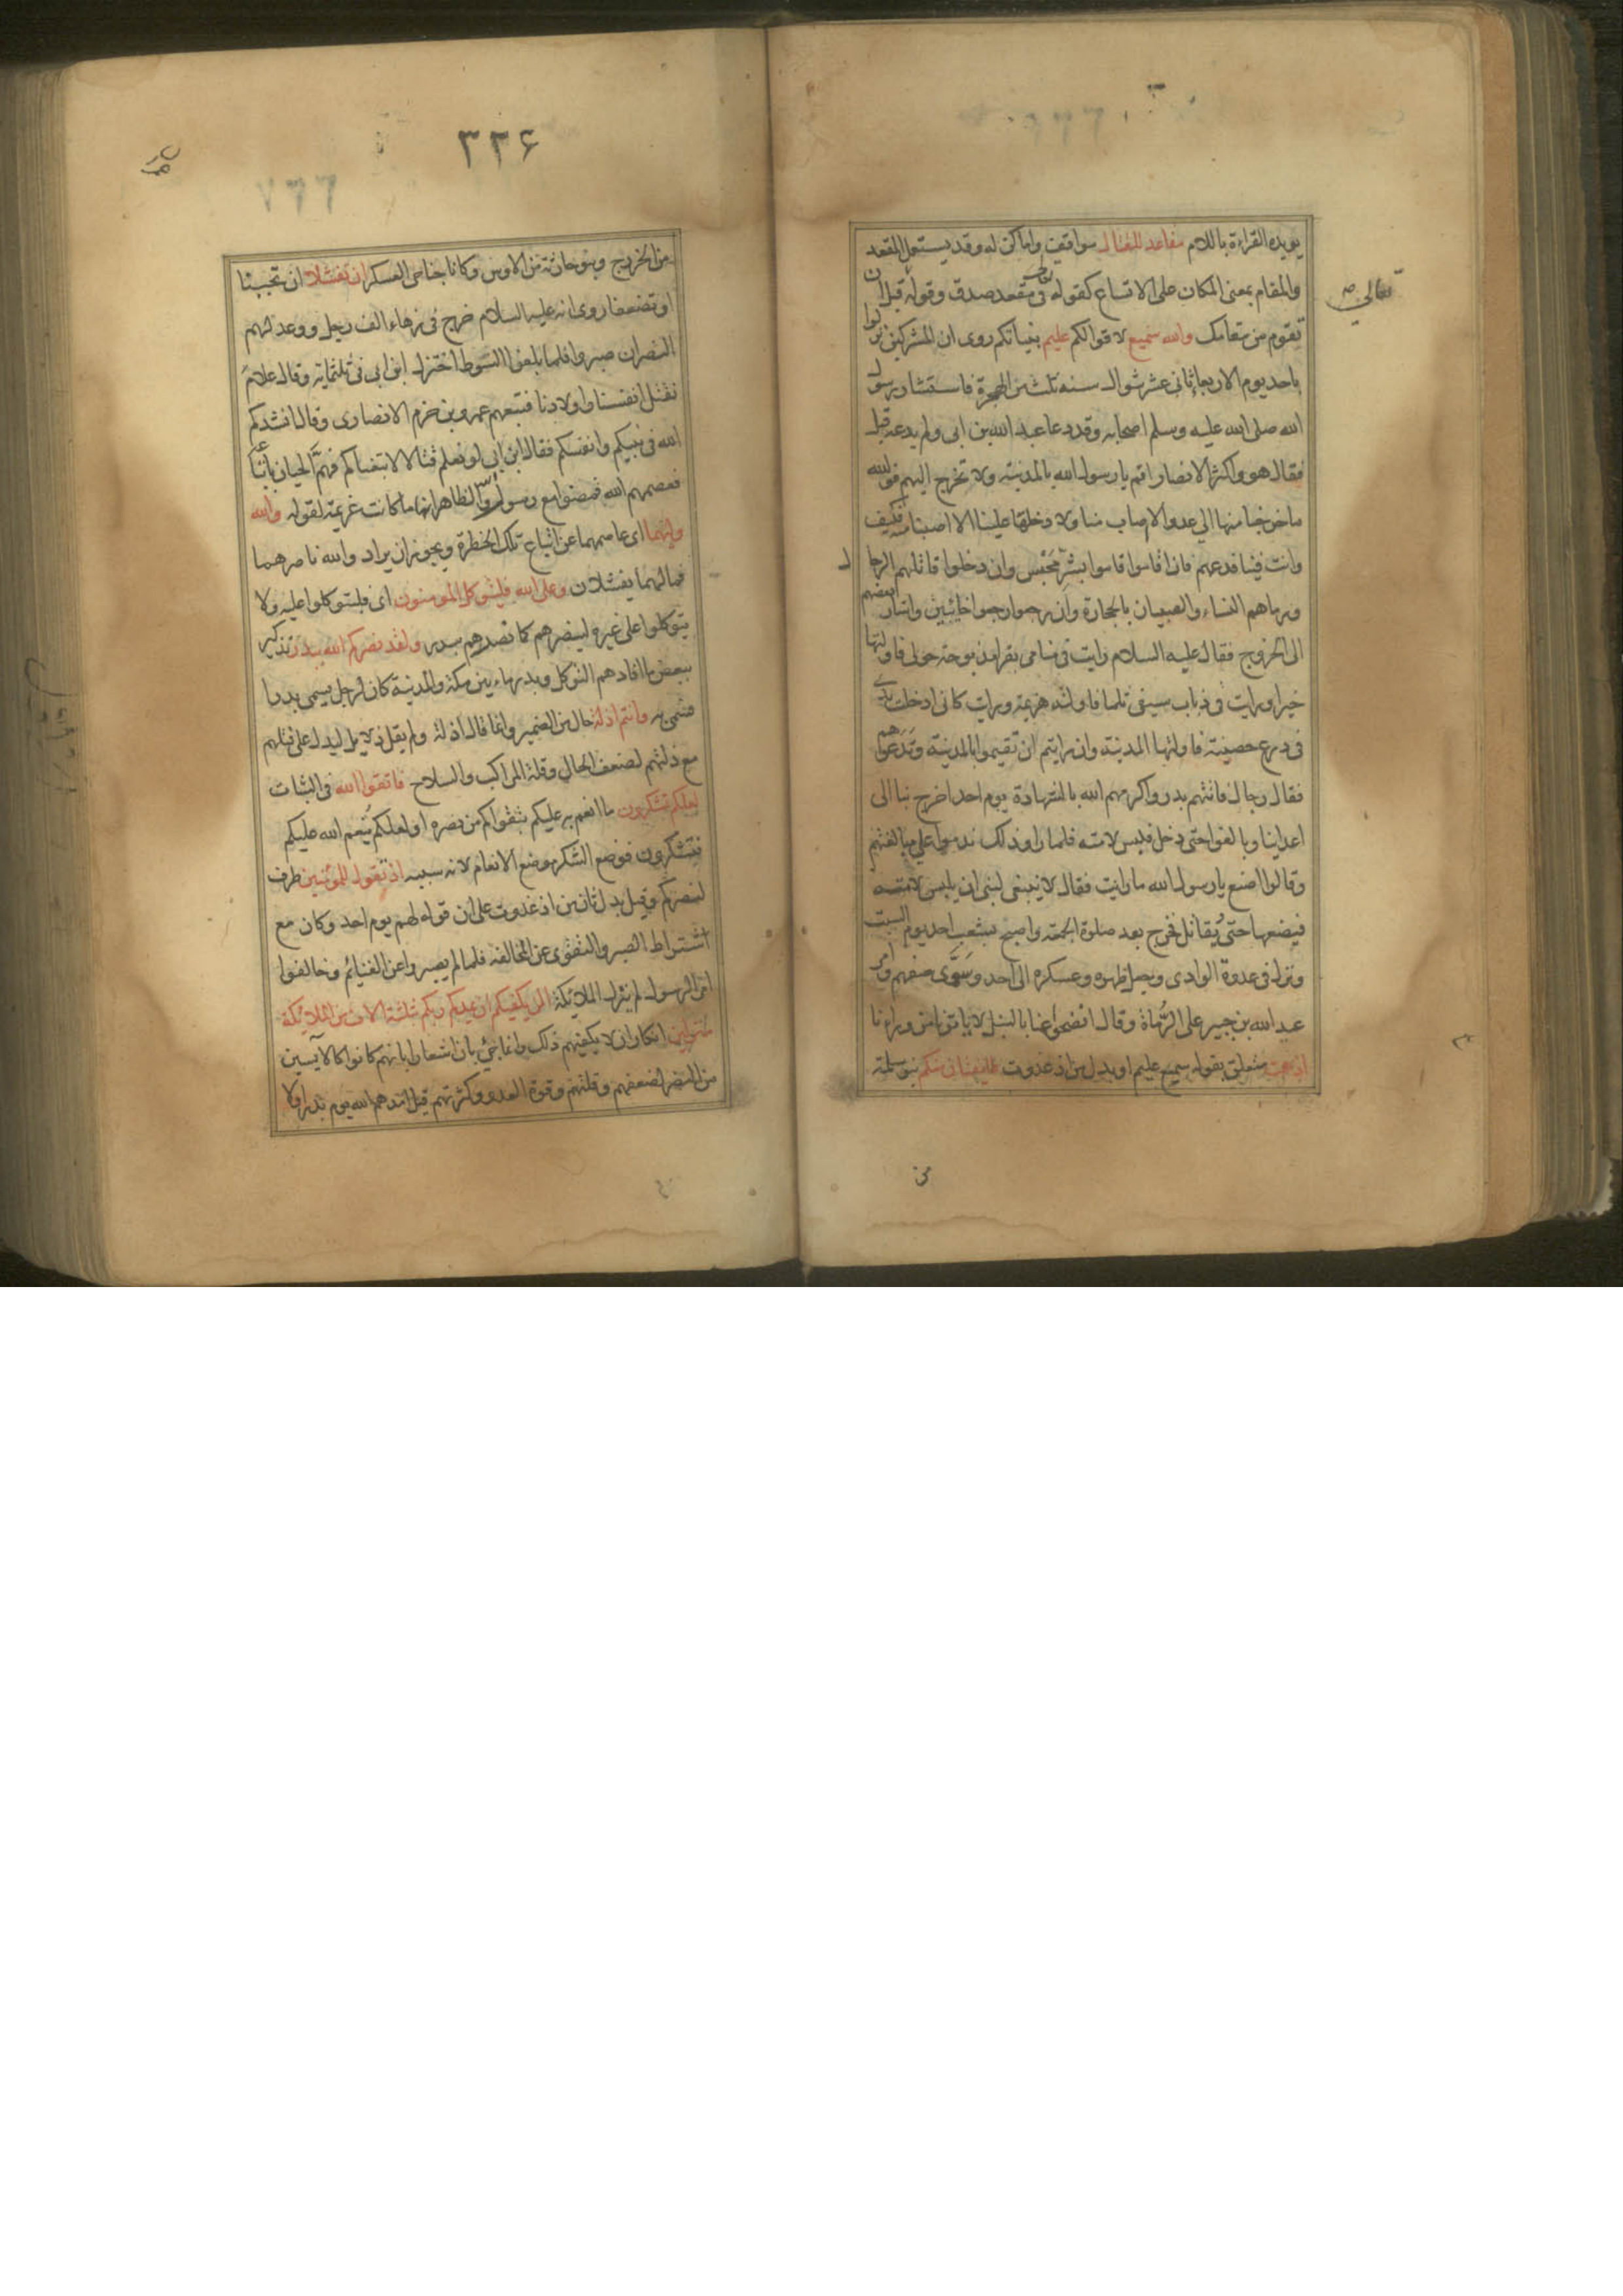 يويده القراءة باللام مقاعد للقتال مواقف واماكن له وقد يستعمل المقعد
والمقام بمعنى المكان على الاتساع كقوله في مقعد صدق وقوله قبل ان
تعالى
تقوم من مقامك والله سميع لاقوالكم عليم بنياتكم روى ان المشركين نزلوا
باحد يوم الاربعاء ثاني عشر شوال سنه ثلث من الهجرة فاستشار رسول
الله صلى الله عليه وسلم اصحابه وقد دعا عبد الله بن ابى ولم يدعه قبل
فقال هو واكثر الانصار اقم يا رسول الله بالمدينة ولا تخرج اليهم فوالله
ما خرجنا منها الى عدو الا اصاب منا ولا دخلها علينا الا اصبنا منه فكيف
وانت فينا فدعهم فان اقاموا اقاموا بشر محبس وان دخلوا قاتلهم الرجال
ورماهم النساء والصبيان بالحجارة وان رجعوا رجعوا خائبين واشار بعضهم
الى الخروج فقال عليه السلام رايت فى منامى بقرا مذبوحة حولى فاولتها
خيرا ورايت فى ذباب سيفى ثلما فاولته هزيمة ورايت كانى ادخلت يدى
فى درع حصينة فاولتها المدينة وان رايتم ان تقيموا بالمدينة وتدعوهم
فقال رجال فاتتهم بدر واكرمهم الله بالشهادة يوم احد اخرج بنا الى
اعدائنا وبالغوا حتى دخل فلبس لامته فلما راوا ذلك ندموا على مبالغتهم
وقالوا اصنع يا رسول الله ما رايت فقال لا ينبغى لنبى ان يلبس لامته
فيضعها حتى يقاتل فخرج بعد صلوة الجمعة واصبح بشعب احد يوم السبت
ونزل فى عدوة الوادى وجعل ظهره وعسكره الى احد وسوى صفهم وامر
عبد الله بن جبير على الرماة وقال انضحوا عنا بالنبل لا ياتونا من وراءنا
اذ همت متعلق بقوله سميع عليم او بدل من اذ غدوت طايفتان منكم بنو سلمة
من
٣٢۶
من الخزرج وبنو حارثة من الاوس وكانا جناحى العسكر ان تفشلا ان تجبنا
او تضعفا روى انه عليه السلام خرج فى زهاء الف رجل ووعد لهم
النصر ان صبروا فلما بلغوا الشوط اختزل ابن ابى فى ثلثماية وقال علام
نقتل انفسنا واولادنا فتبعهم عمرو بن حزم الانصارى وقال انشدكم
الله فى نبيكم وانفسكم فقال ابن ابى لو نعلم قتالا لاتبعناكم فهم الحيان باتباعه
فعصمهم الله فمضوا مع رسول الله والظاهر انها ما كانت عزيمة لقوله والله
وليهما اى عاصمهما عن اتباع تلك الخطرة ويجوز ان يراد والله ناصرهما
فما لهما يفشلان وعلى الله فليتوكل المومنون اى فليتوكلوا عليه ولا
يتوكلوا على غيره لينصرهم كما نصرهم ببدر ولقد نصركم الله ببدر تذكير
ببعض ما افادهم التوكل وبدر ماء بين مكة والمدينة كان لرجل يسمى بدرا
فسمى به وانتم اذلة حال من الضمير وانما قال اذلة ولم يقل ذلايل ليدل على قلتهم
مع ذلتهم لضعف الحال وقلة المراكب والسلاح فاتقوا الله فى الثبات
لعلكم تشكرون ما انعم به عليكم بتقواكم من نصره او لعلكم ينعم الله عليكم
فتشكرون فوضع الشكر موضع الانعام لانه سببه اذ تقول للمؤمنين ظرف
لنصركم وقيل بدل ثان من اذ غدوت على ان قوله لهم يوم احد وكان مع
اشتراط الصبر والتقوى عن المخالفة فلما لم يصبروا عن الغنائم وخالفوا
امر الرسول لم ينزل الملائكة الن يكفيكم ان يمدكم ربكم بثلثة الاف من الملائكة
منزلين انكار ان لا يكفيهم ذلك وانما جئ بلن اشعارا بانهم كانوا كالآيسين
من النصر لضعفهم وقلتهم وقوة العدو وكثرتهم قيل امدهم الله يوم بدر اولا